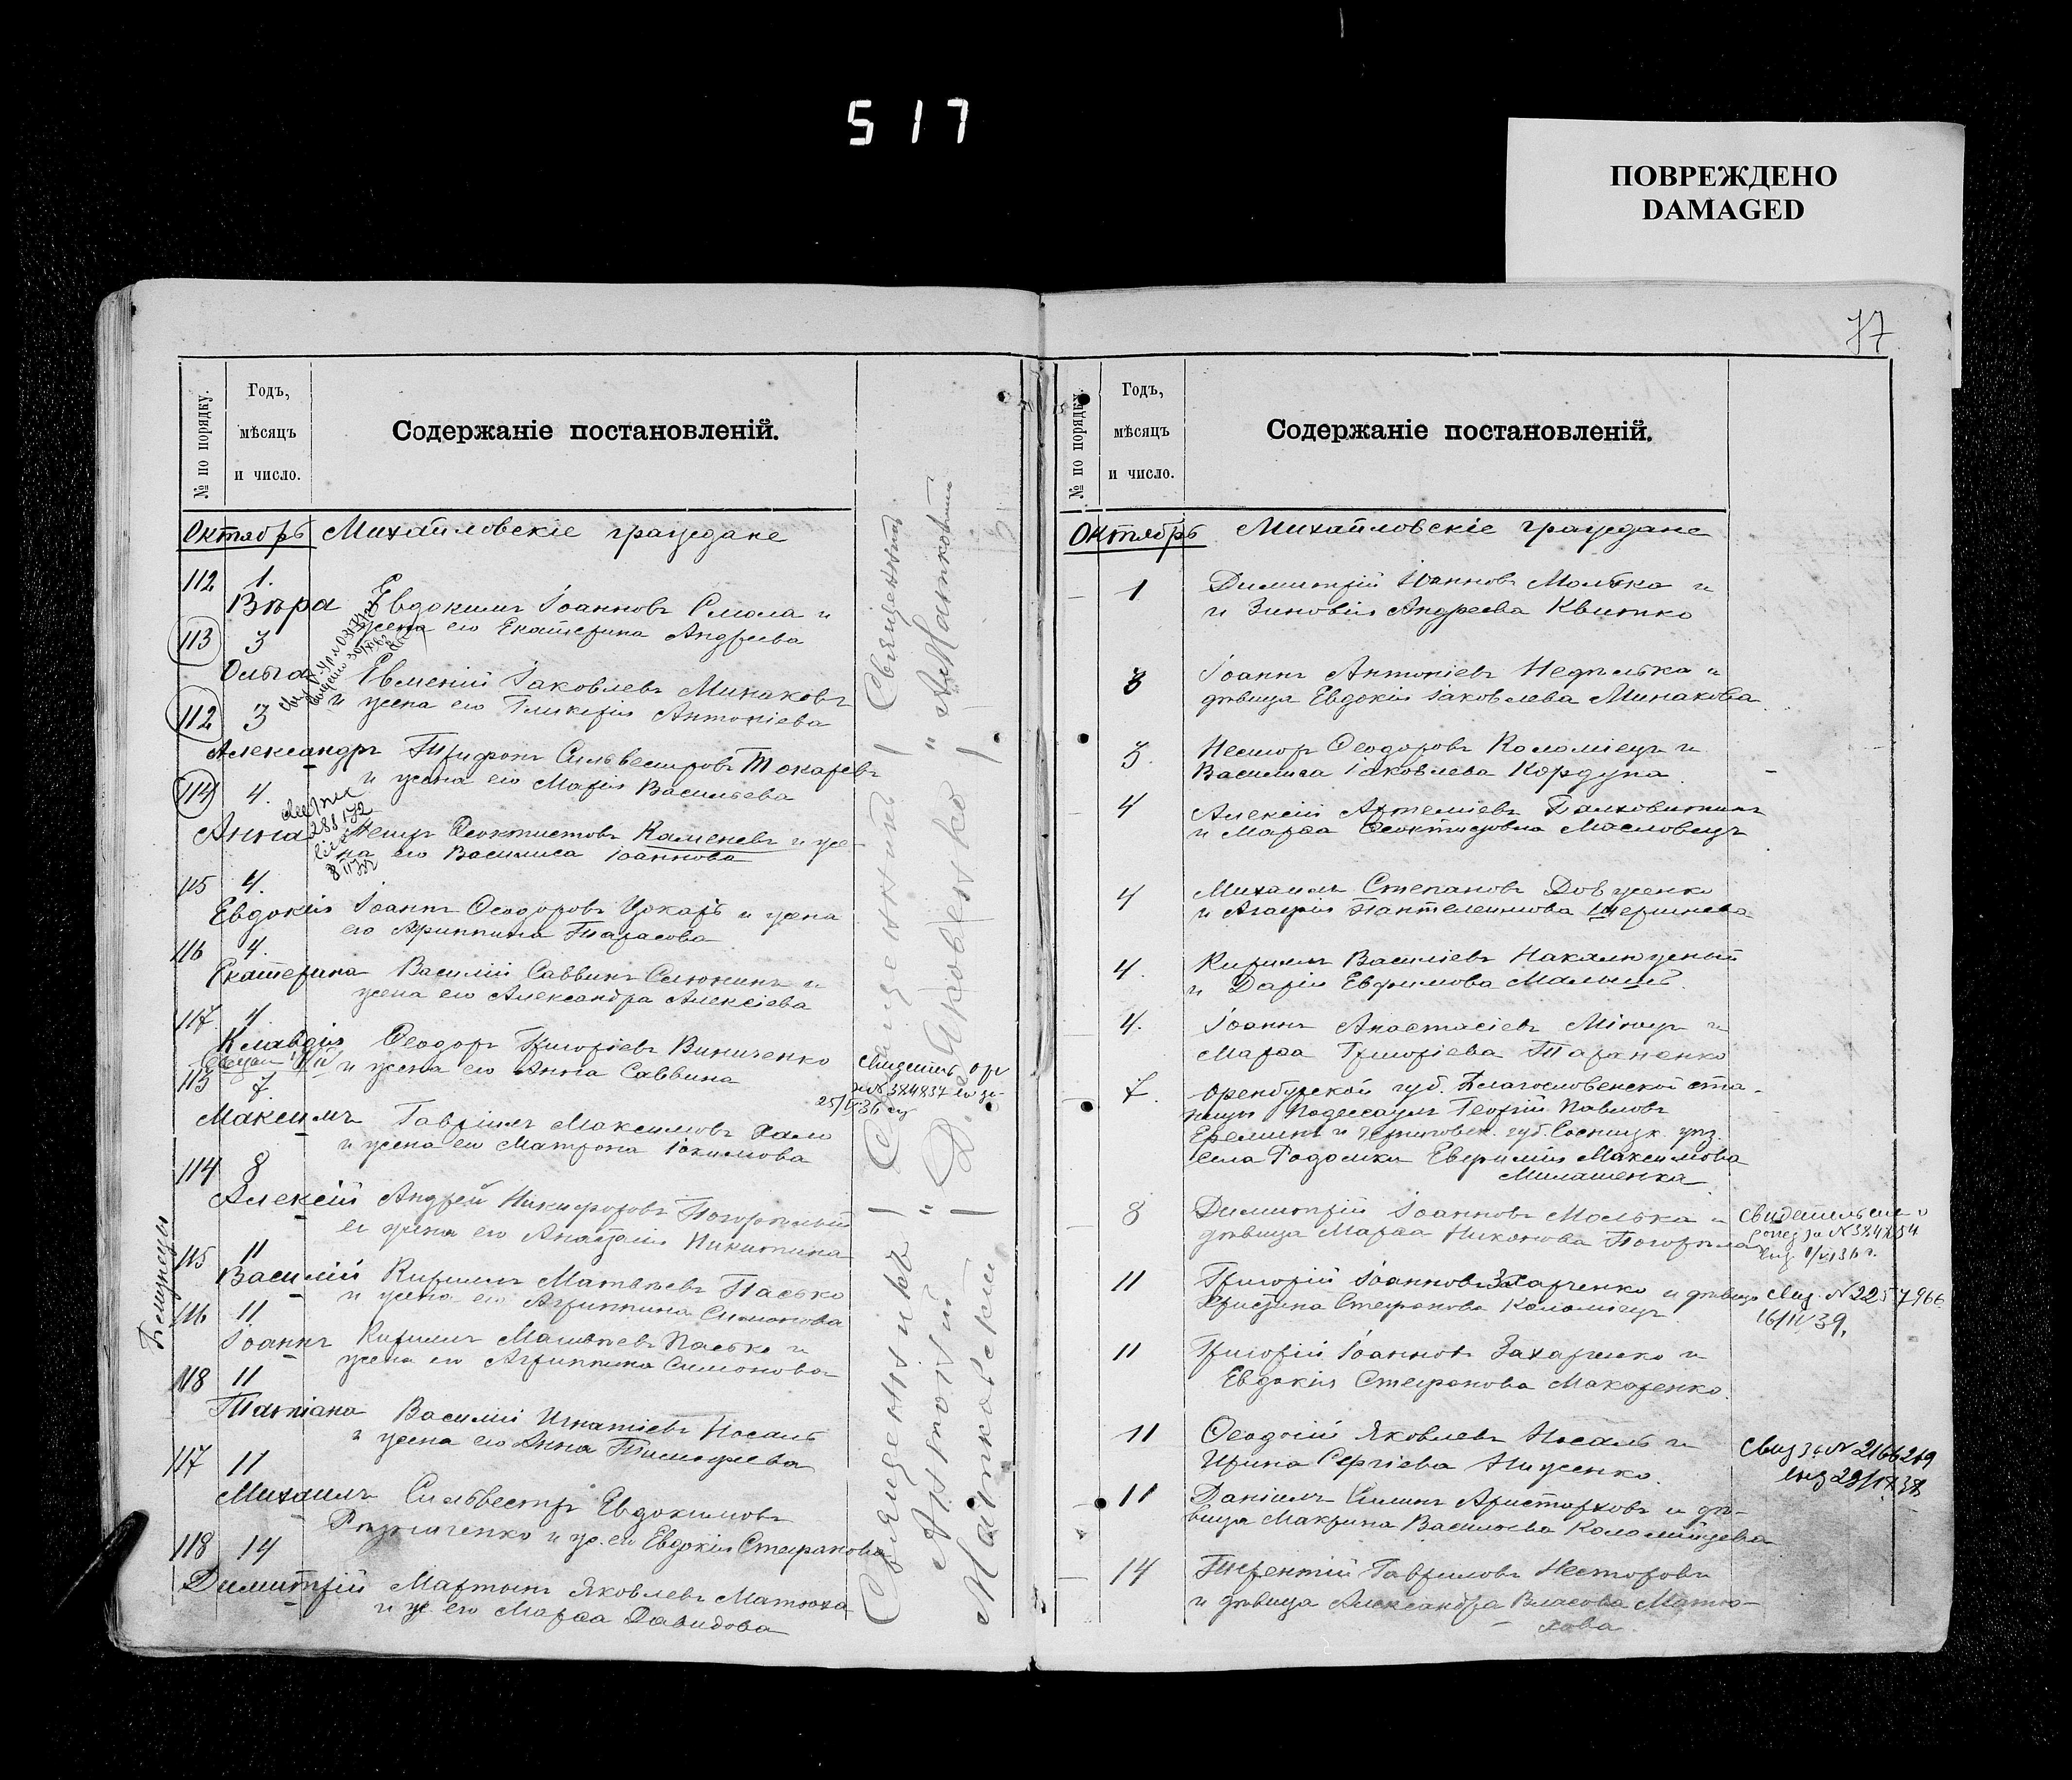 517
ПОВРЕЖДЕНО
DAMAGED
№ по порядку.
Годъ,
мѣсяцъ
и число.
Содержаніе постановленій.
Октябрь Михайловскіе граждане
112 1.
Вѣра Евдокимъ Іоанновъ Смола и
жена его Екатерина Андреева
113 3
Ольга Евмений Іаковлевъ Минаковъ
и жена его Гликерія Антоніева
112 3
Александръ Трифонъ Сильвестровъ Токаревъ
и жена его Марія Васильева
114 4.
288192
Анна Феоктистовъ Каменевъ и же-
на его Василиса Іоаннова
115 4.
Евдокія Іоаннъ Ѳеодоровъ Цокаръ и жена
его Агриппина Тарасова
116 4.
Екатерина Василій Саввинъ Сиюнинъ и
жена его Александра Алексіева
117 4
Клавдія Ѳеодоръ Григоріевъ Виниченко
и жена его Анна Саввина
113 7.
Максимъ Гавріилъ Максимовъ Хало
и жена его Матрона Іоакимова
№ 384837
25/V 36
114 8
Алексій Андрей Никифоровъ Погорѣлый
и жена его Анастасія Никитина
115 11
Василій Кириллъ Матвѣевъ Пасько
и жена его Агриппина Симонова
Близнецы
116 11
Іоаннъ Кириллъ Матвѣевъ Пасько и
жена его Агриппина Симонова
118 11
Татіана Василій Игнатіевъ Носаль
и жена его Анна Тимофеева
117 11
Михаилъ Сильвестръ Евдокимовъ
Рѣзниченко и ж. его Евдокія Стефанова
118 14
Димитрій Мартынъ Яковлевъ Матюха
и ж. его Марѳа Давидова
Священникъ Священникъ Священникъ
Антоній " Д. Яковенко " А. Матковскій
Матковскій
77
№ по порядку.
Годъ,
мѣсяцъ
и число.
Содержаніе постановленій.
Октябрь Михайловскіе граждане
1 Димитрій Іоанновъ Молька и
и Зиновія Андреева Квитко
3 Іоаннъ Антоніевъ Недѣлька и
дѣвица Евдокія Іаковлева Минакова
3. Несторъ Ѳеодоровъ Коломіецъ и
Василиса Іаковлева Кордупа
4 Алексій Артеміевъ
и Марѳа Ѳеоктистовна Масловецъ
4 Михаилъ Степановъ Довженко
и Агафія Пантелеимова
4. Кириллъ Василіевъ Накалюжный
и Дарія Евфимова Малышъ.
4. Іоаннъ Анастасіевъ Мінецъ и
Марѳа Григоріева Тараненко
7. Оренбургской губ. Благословенской ста-
ницы Подесаулъ Георгій Павловъ
Ереминъ и Черниговск. губ. Сосницк. уѣз.
села Радомки Евфимія Максимова
Милашенка
8 Димитрій Іоанновъ Молька и
дѣвица Марѳа Никонова Погорѣлая
№ 384854
11 Григорій Іоанновъ Захарченко и дѣвица
Христина Стефанова Коломіецъ.
Свид. № 2257966
16/IV 39.
11 Григорій Іоанновъ Захарченко и
Евдокія Стефанова Макаренко.
11 Ѳеодосій Яковлевъ Носаль и
Ирина Сергіева Ниженко.
Свид за № 2166219
11 Даніилъ Илиинъ Аристарховъ и дѣ-
вица Макрина Васильева Коломійцева
14 Терентій Гавриловъ Несторовъ
и дѣвица Александра Власова Матю-
хова.